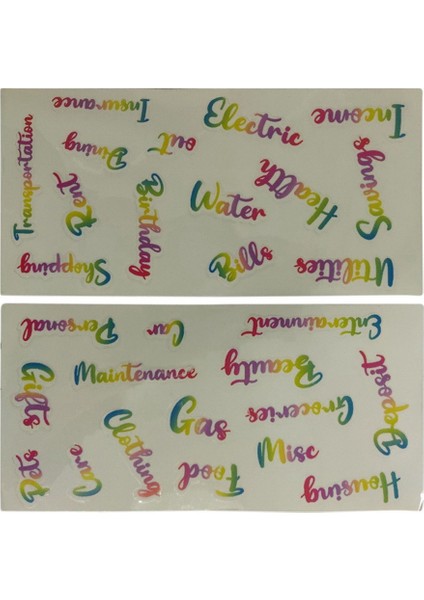 Insurance
Electric
Income
Transportation
Dining
out
Savings
Rent
Birthday
Water
Health
Shopping
Bills
Utilities
Personal
Car
Enterainment
Gifts
Maintenance
Beauty
Deposit
Gas
Groceries
Clothing
Misc
Pets
Care
Food
Housing